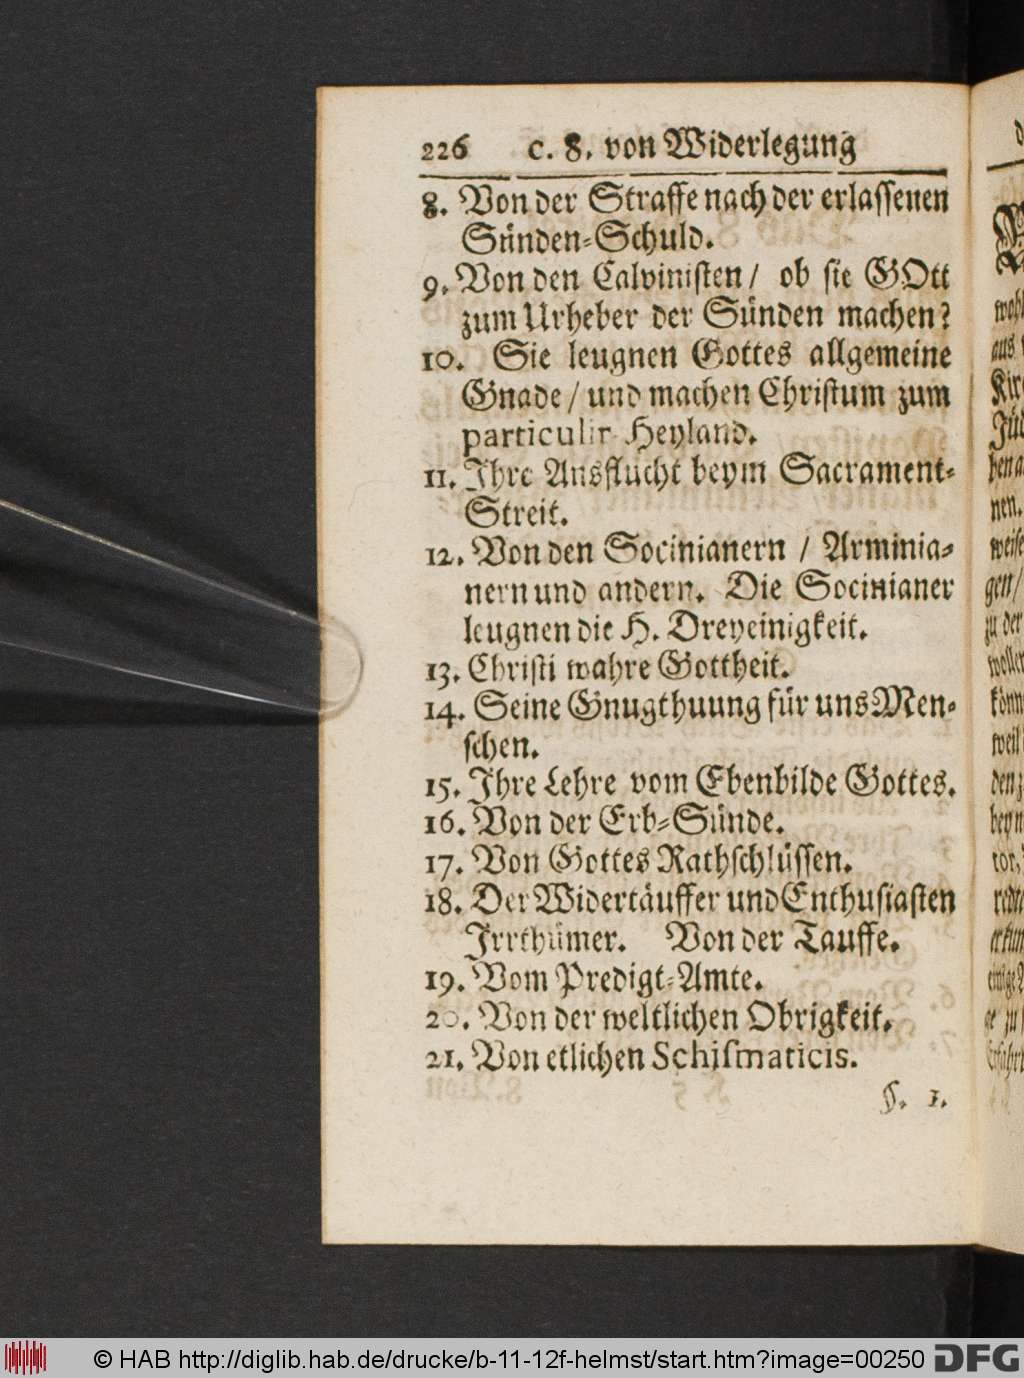 226 c. 8. von Widerlegung
8. Von der Straffe nach der erlassenen
Sünden-Schuld.
9. Von den Calvinisten / ob sie GOtt
zum Urheber der Sünden machen?
10. Sie leugnen Gottes allgemeine
Gnade / und machen Christum zum
particulir-Heyland.
11. Ihre Ausflucht beym Sacrament-
Streit.
12. Von den Socinianern / Arminia-
nern und andern. Die Socinianer
leugnen die H. Dreyeinigkeit.
13. Christi wahre Gottheit.
14. Seine Gnugthuung für uns Men-
schen.
15. Ihre Lehre vom Ebenbilde Gottes.
16. Von der Erb-Sünde.
17. Von Gottes Rathschlüssen.
18. Der Widertäuffer und Enthusiasten
Irrthümer. Von der Tauffe.
19. Vom Predigt-Amte.
20. Von der weltlichen Obrigkeit.
21. Von etlichen Schiſmaticis.
§. 1.
© HAB http://diglib.hab.de/drucke/b-11-12f-helmst/start.htm?image=00250 DFG